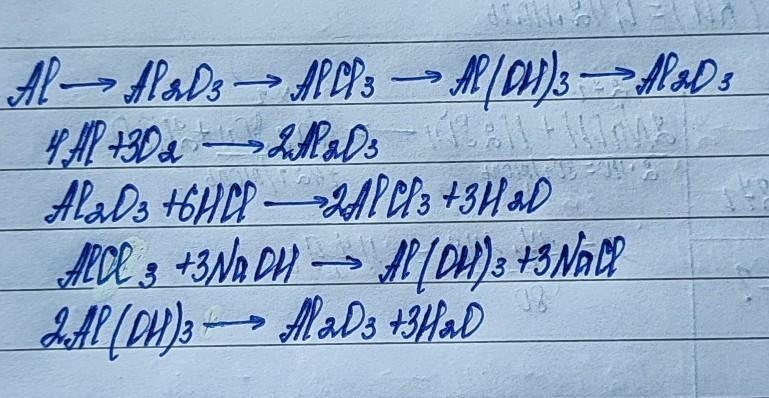 Al → Al2O3 → AlCl3 → Al(OH)3 → Al2O3
4Al + 3O2 → 2Al2O3
Al2O3 + 6HCl → 2AlCl3 + 3H2O
AlCl3 + 3NaOH → Al(OH)3 + 3NaCl
2Al(OH)3 → Al2O3 + 3H2O